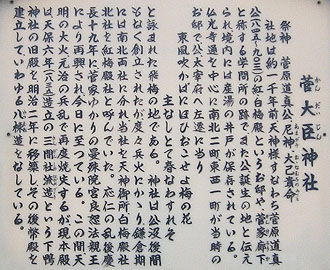 菅大臣神社
かんだいじん
祭神 菅原道真公尼神 大己貴命
社地は約一千年前天神様すなわち菅原道真
公(八四五〜九〇三)の紅白梅殿というお邸や菅家廊下
と称する学問所の跡でまた公誕生の地と伝え
られ境内には産湯の井戸が保存されている。
仏光寺通を中心に南北二町東西一町が当時の
お邸で公太宰府へ左遷に当り
東風吹かばにほひおこせよ梅の花
主なしとて春なわすれそ
と詠まれた飛梅の地である。神社は公没後間
もなく創立されたが度々兵火にあい鎌倉期
には南北両社に分れ当社を天神御所白梅殿社
北社を紅梅殿社と呼んでいた。応仁の乱後慶
長十九年に菅家ゆかりの曼殊院宮良恕法親王
により再興され今日に至っている。この間天
明の大火元治の兵乱で再度焼失するが現本殿
は天保六年(一八三五)造立の三間社流造という下鴨
神社の旧殿を明治二年に移築しその後幣殿を
建立していわゆる八棟造をしている。